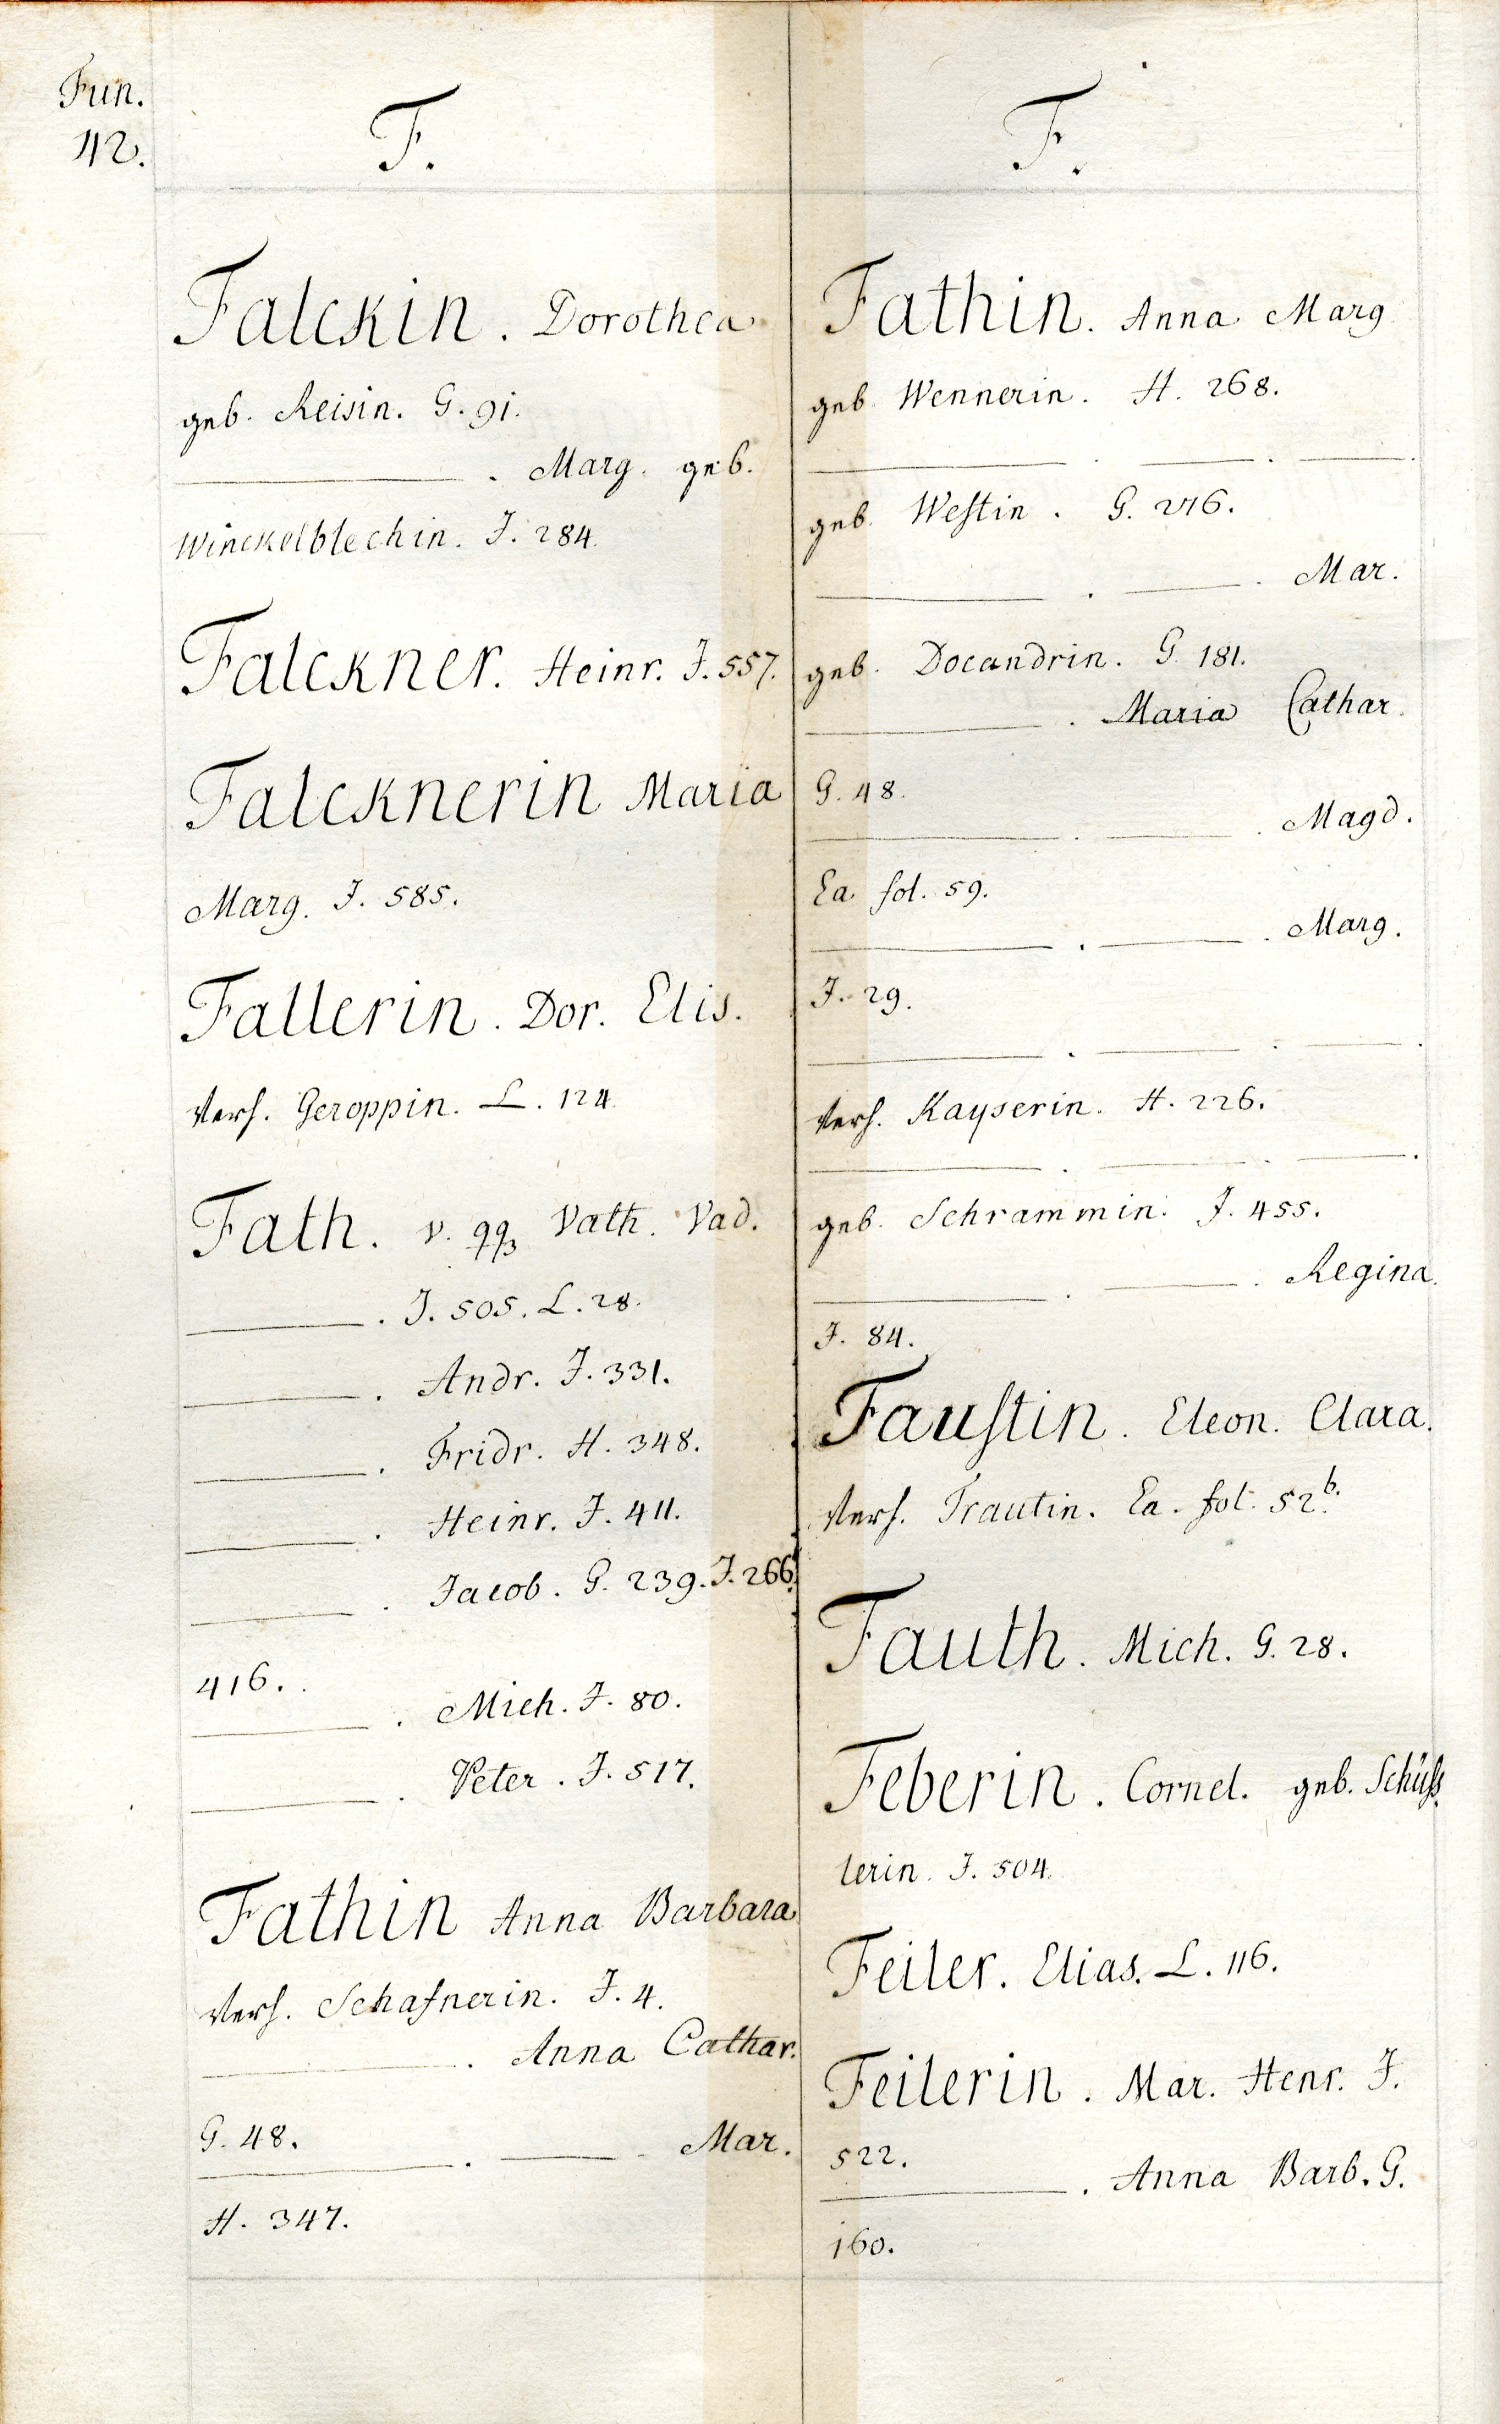 Fun.
42.
F.
Falckin. Dorothea
geb. Reisin. G. 91.
———. Marg. geb.
Winckelblechin. J. 284.
Falckner. Heinr. J. 557.
Falcknerin Maria
Marg. J. 585.
Fallerin. Dor. Elis.
verh. Geroppin. L. 124.
Fath. v. qq3 Vath. Vad.
———. J. 505. L. 28.
———. Andr. J. 331.
———. Fridr. H. 348.
———. Heinr. J. 411.
———. Jacob. G. 239. J. 266.
416.
———. Mich. J. 80.
———. Peter. J. 517.
Fathin Anna Barbara
verh. Schafnerin. J. 4.
———. Anna Cathar.
G. 48.
———. ———. Mar.
H. 347.
F.
Fathin. Anna Marg
geb. Wennerin. H. 268.
———. ———. ———.
geb. Westin. G. 276.
———. ———. Mar.
geb. Docandrin. G. 181.
———. Maria Cathar.
G. 48.
———. ———. Magd.
Ea fol. 59.
———. ———. Marg.
J. 29.
———. ———. ———.
verh. Kayserin. H. 226.
———. ———. ———.
geb. Schrammin. J. 455.
———. ———. Regina.
J. 84.
Faustin. Eleon. Clara.
verh. Trautin. Ea. fol. 52b.
Fauth. Mich. G. 28.
Feberin. Cornel. geb. Schüß
lerin. J. 504.
Feiler. Elias. L. 116.
Feilerin. Mar. Henr. J.
522.
———. Anna Barb. G.
160.